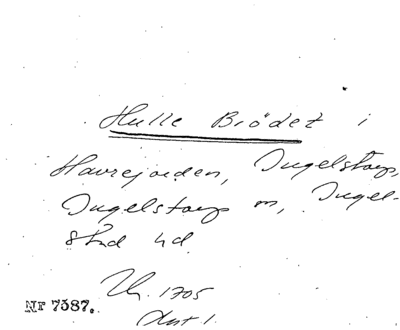 Hulle Brödet i
Havrejorden, Ingelstorp,
Ingelstorp sn, Ingel-
stad hd
1705
Nr 7587.